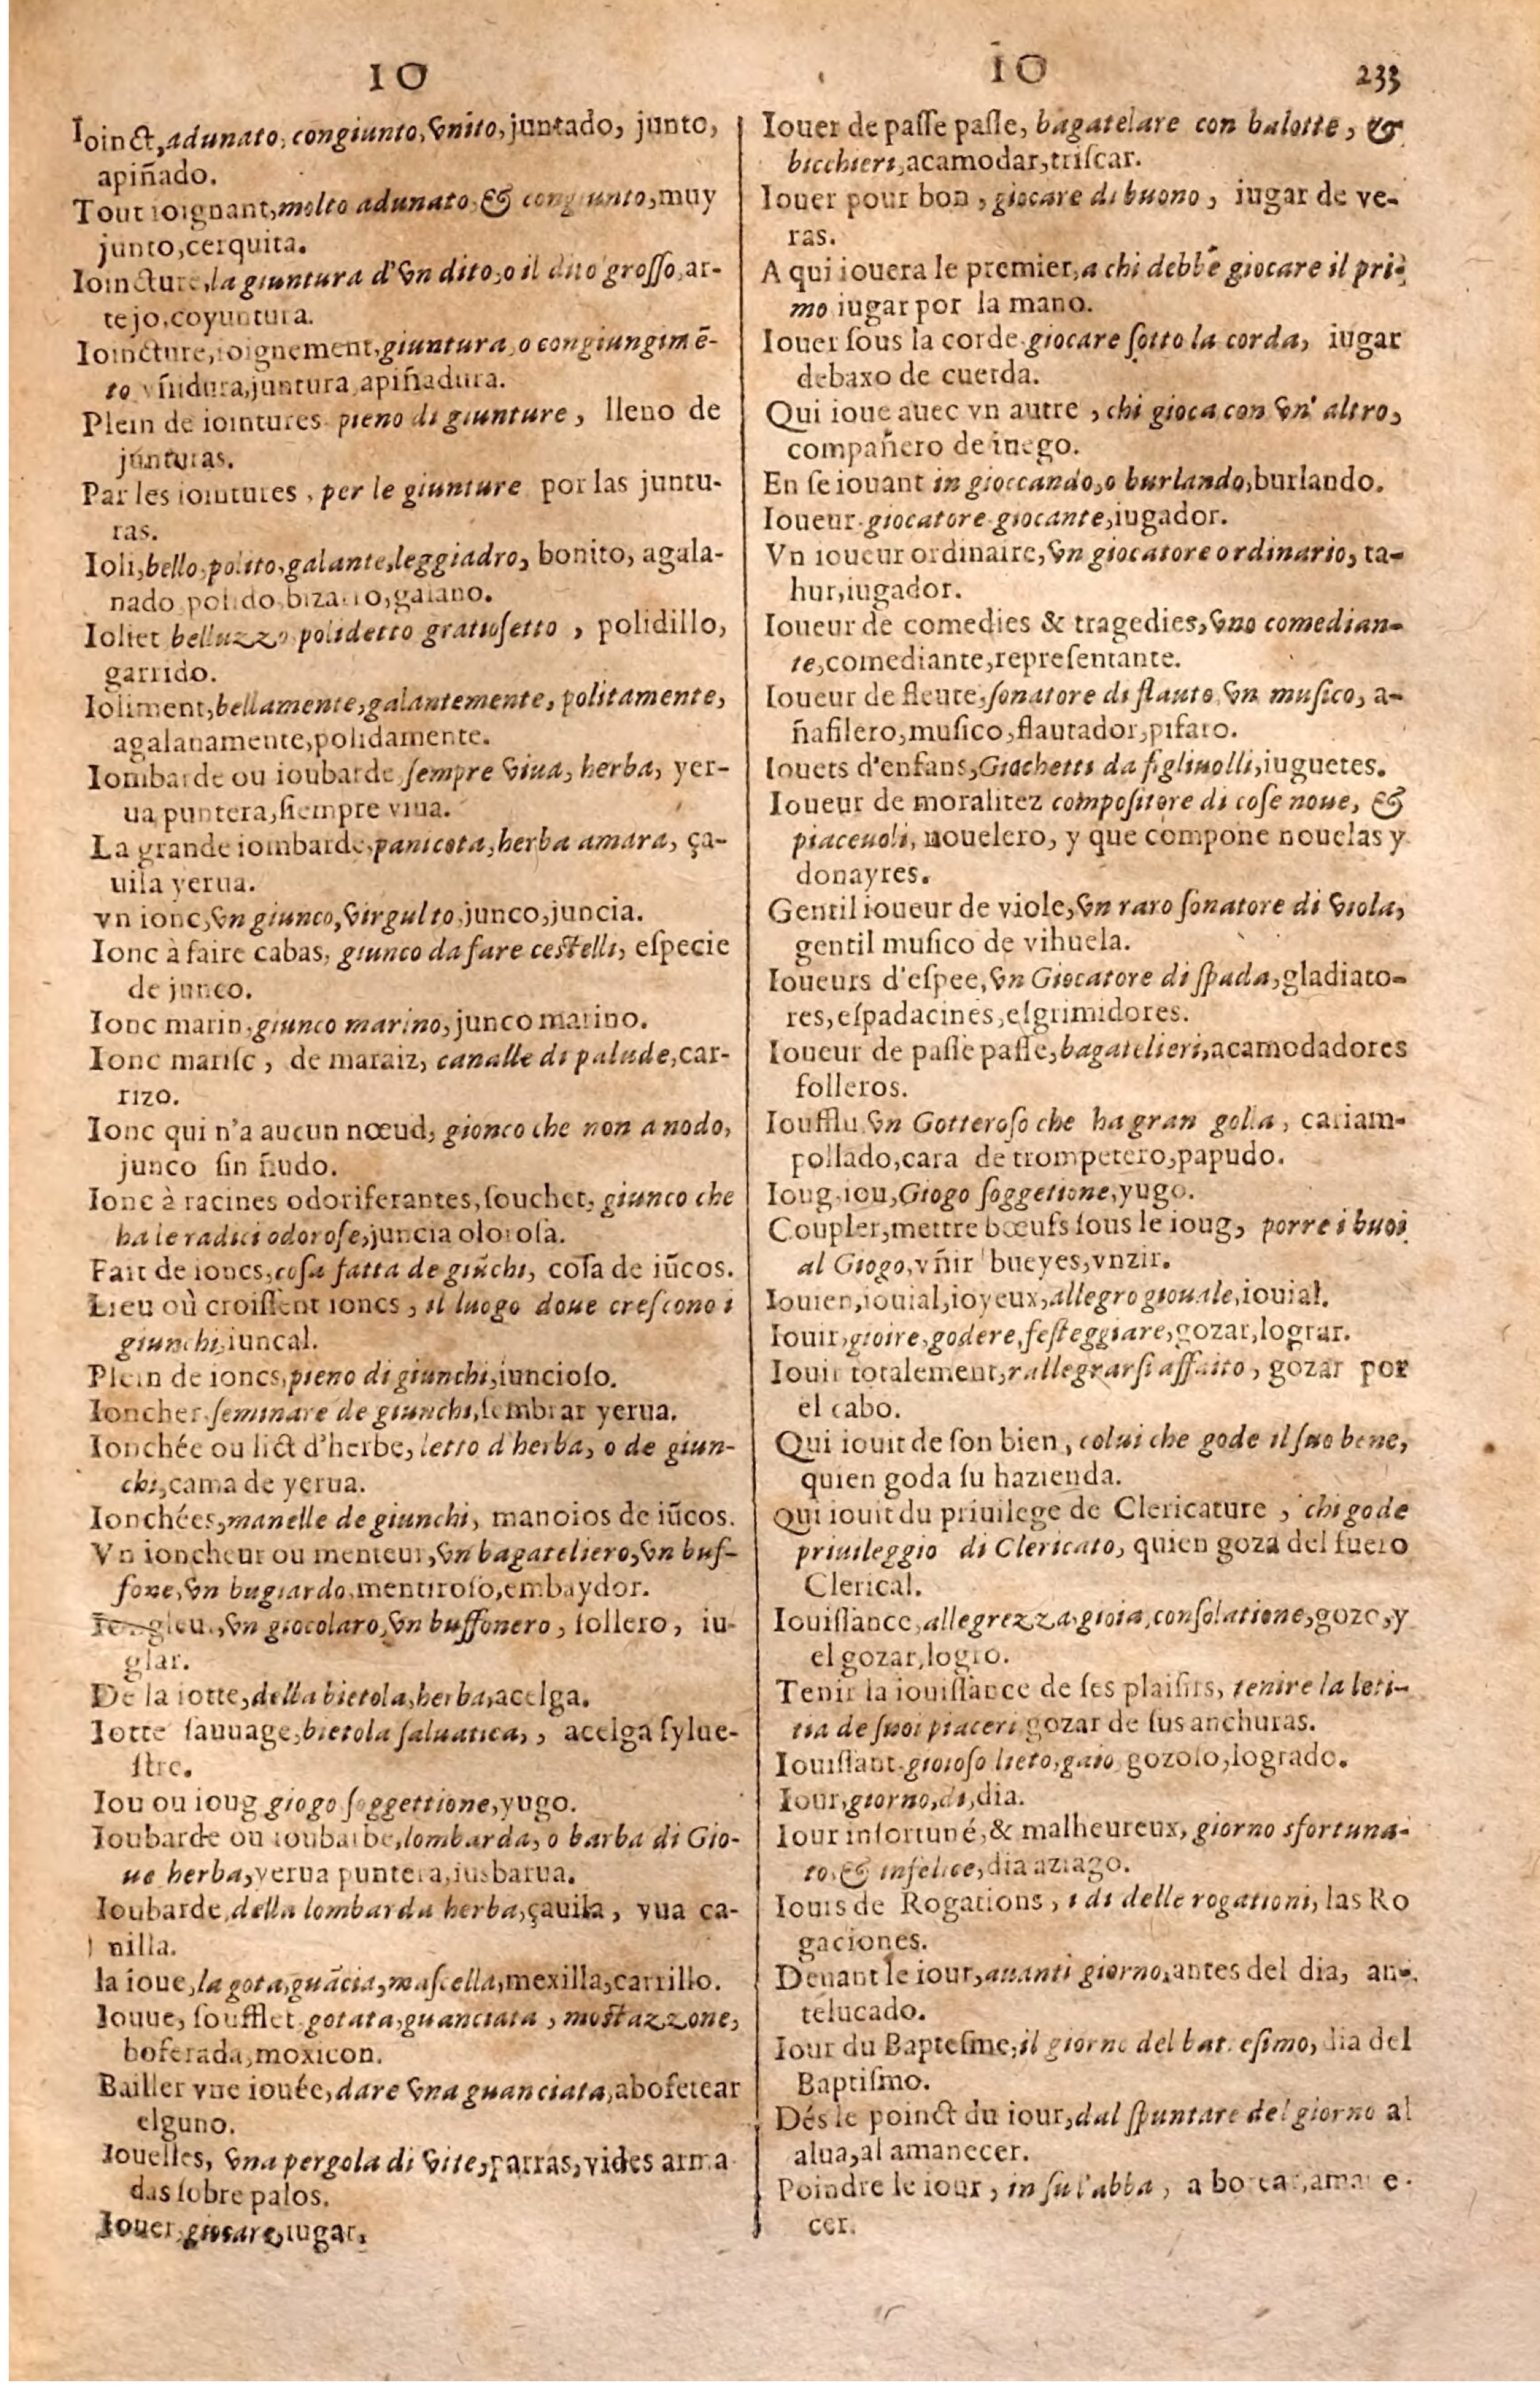 IO
Ioinct, adunato, congiunto, vnito, juntado, junto,
apiñado.
Tout ioignant, molto adunato, & congiunto, muy
junto, cerquita.
Ioincture, la giuntura d'vn dito, o il dito groſſo, ar-
tejo, coyuntura.
Ioincture, ioignement, giuntura, o congiungimẽ-
to vñidura, juntura apiñadura.
Plein de iointures pieno di giunture, lleno de
junturas.
Par les iointures, per le giunture por las juntu-
ras.
Ioli, bello, polito, galante, leggiadro, bonito, agala-
nado polido, bizarro, galano.
Ioliet belluzzo polidetto gratioſetto, polidillo,
garrido.
Ioliment, bellamente, galantemente, politamente,
agalanamente, polidamente.
Iombarde ou ioubarde, ſempre viua, herba, yer-
ua puntera, ſiempre viua.
La grande iombarde, panicota, herba amara, ça-
uila yerua.
vn ionc, vn giunco, virgulto, junco, juncia.
Ionc à faire cabas, giunco da fare ceſtelli, eſpecie
de junco.
Ionc marin, giunco marino, junco marino.
Ionc mariſc, de maraiz, canalle di palude, car-
rizo.
Ionc qui n'a aucun nœud, gionco che non a nodo,
junco ſin ñudo.
Ionc à racines odoriferantes, ſouchet, giunco che
ha le radici odoroſe, juncia oloroſa.
Fait de ioncs, coſa fatta de giũchi, coſa de iũcos.
Lieu où croiſſent ioncs, il luogo doue creſcono i
giunchi, iuncal.
Plein de ioncs, pieno di giunchi, iuncioſo.
Ioncher, ſeminare de giunchi, ſembrar yerua.
Ionchée ou lict d'herbe, letto d'herba, o de giun-
chi, cama de yerua.
Ionchées, manelle de giunchi, manoios de iũcos.
Vn ioncheur ou menteur, vn bagateliero, vn buf-
fone, vn bugiardo, mentiroſo, embaydor.
Iongleur, vn giocolaro, vn buffonero, follero, iu-
glar.
De la iotte, della bietola, herba, acelga.
Iotte ſauuage, bietola ſaluatica,, acelga ſylue-
ſtre.
Iou ou ioug giogo ſoggettione, yugo.
Ioubarde ou ioubarbe, lombarda, o barba di Gio-
ue herba, yerua puntera, iusbarua.
Ioubarde, della lombarda herba, çauila, vua ca-
nilla.
la ioue, la gota, guãcia, maſcella, mexilla, carrillo.
Iouue, ſoufflet gotata, guanciata, moſtazzone,
bofetada, moxicon.
Bailler vne iouée, dare vna guanciata, abofetear
elguno.
Iouelles, vna pergola di vite, parras, vides arma
das ſobre palos.
Iouer, giocare, iugar,
IO 233
Iouer de paſſe paſſe, bagatelare con balotte, &
bicchieri, acamodar, triſcar.
Iouer pour bon, giocare di buono, iugar de ve-
ras.
A qui iouera le premier, a chi debbe giocare il pri-
mo iugar por la mano.
Iouer ſous la corde, giocare ſotto la corda, iugar
debaxo de cuerda.
Qui ioue auec vn autre, chi gioca con vn' altro,
compañero de iuego.
En ſe iouant in gioccando, o burlando, burlando.
Ioueur giocatore giocante, iugador.
Vn ioueur ordinaire, vn giocatore ordinario, ta-
hur, iugador.
Ioueur de comedies & tragedies, vno comedian-
te, comediante, repreſentante.
Ioueur de fleute, ſonatore di flauto, vn muſico, a-
ñafilero, muſico, flautador, pifaro.
Iouets d'enfans, Giochetti da figliuolli, iuguetes.
Ioueur de moralitez compoſitore di coſe noue, &
piaceuoli, nouelero, y que compone nouelas y
donayres.
Gentil ioueur de viole, vn raro ſonatore di viola,
gentil muſico de vihuela.
Ioueurs d'eſpee, vn Giocatore di ſpada, gladiato-
res, eſpadacines, eſgrimidores.
Ioueur de paſſe paſſe, bagatelieri, acamodadores
folleros.
Ioufflu vn Gotteroſo che ha gran golla, cariam-
pollado, cara de trompetero, papudo.
Ioug, iou, Giogo ſoggetione, yugo.
Coupler, mettre bœufs ſous le ioug, porre i buoi
al Giogo, vñir bueyes, vnzir.
Iouien, iouial, ioyeux, allegro giouale, iouial.
Iouir, gioire, godere, feſteggiare, gozar, lograr.
Iouir totalement, rallegrarſi affaito, gozar por
el cabo.
Qui iouit de ſon bien, colui che gode il ſuo bene,
quien goda ſu hazienda.
Qui iouit du priuilege de Clericature, chi gode
priuileggio di Clericato, quien goza del fuero
Clerical.
Iouiſſance, allegrezza, gioia, conſolatione, gozo, y
el gozar, logro.
Tenir la iouiſſance de ſes plaiſirs, tenire la leti-
tia de ſuoi piaceri gozar de ſus anchuras.
Iouiſſant gioioſo lieto, gaio gozoſo, logrado.
Iour, giorno, di, dia.
Iour infortuné, & malheureux, giorno sfortuna-
to, & infelice, dia aziago.
Iours de Rogations, i di delle rogationi, las Ro
gaciones.
Deuant le iour, auanti giorno, antes del dia, an-
telucado.
Iour du Bapteſme, il giorno del bateſimo, dia del
Baptiſmo.
Dés le poinct du iour, dal ſpuntare del giorno al
alua, al amanecer.
Poindre le iour, in ſu l'abba, a
cer.